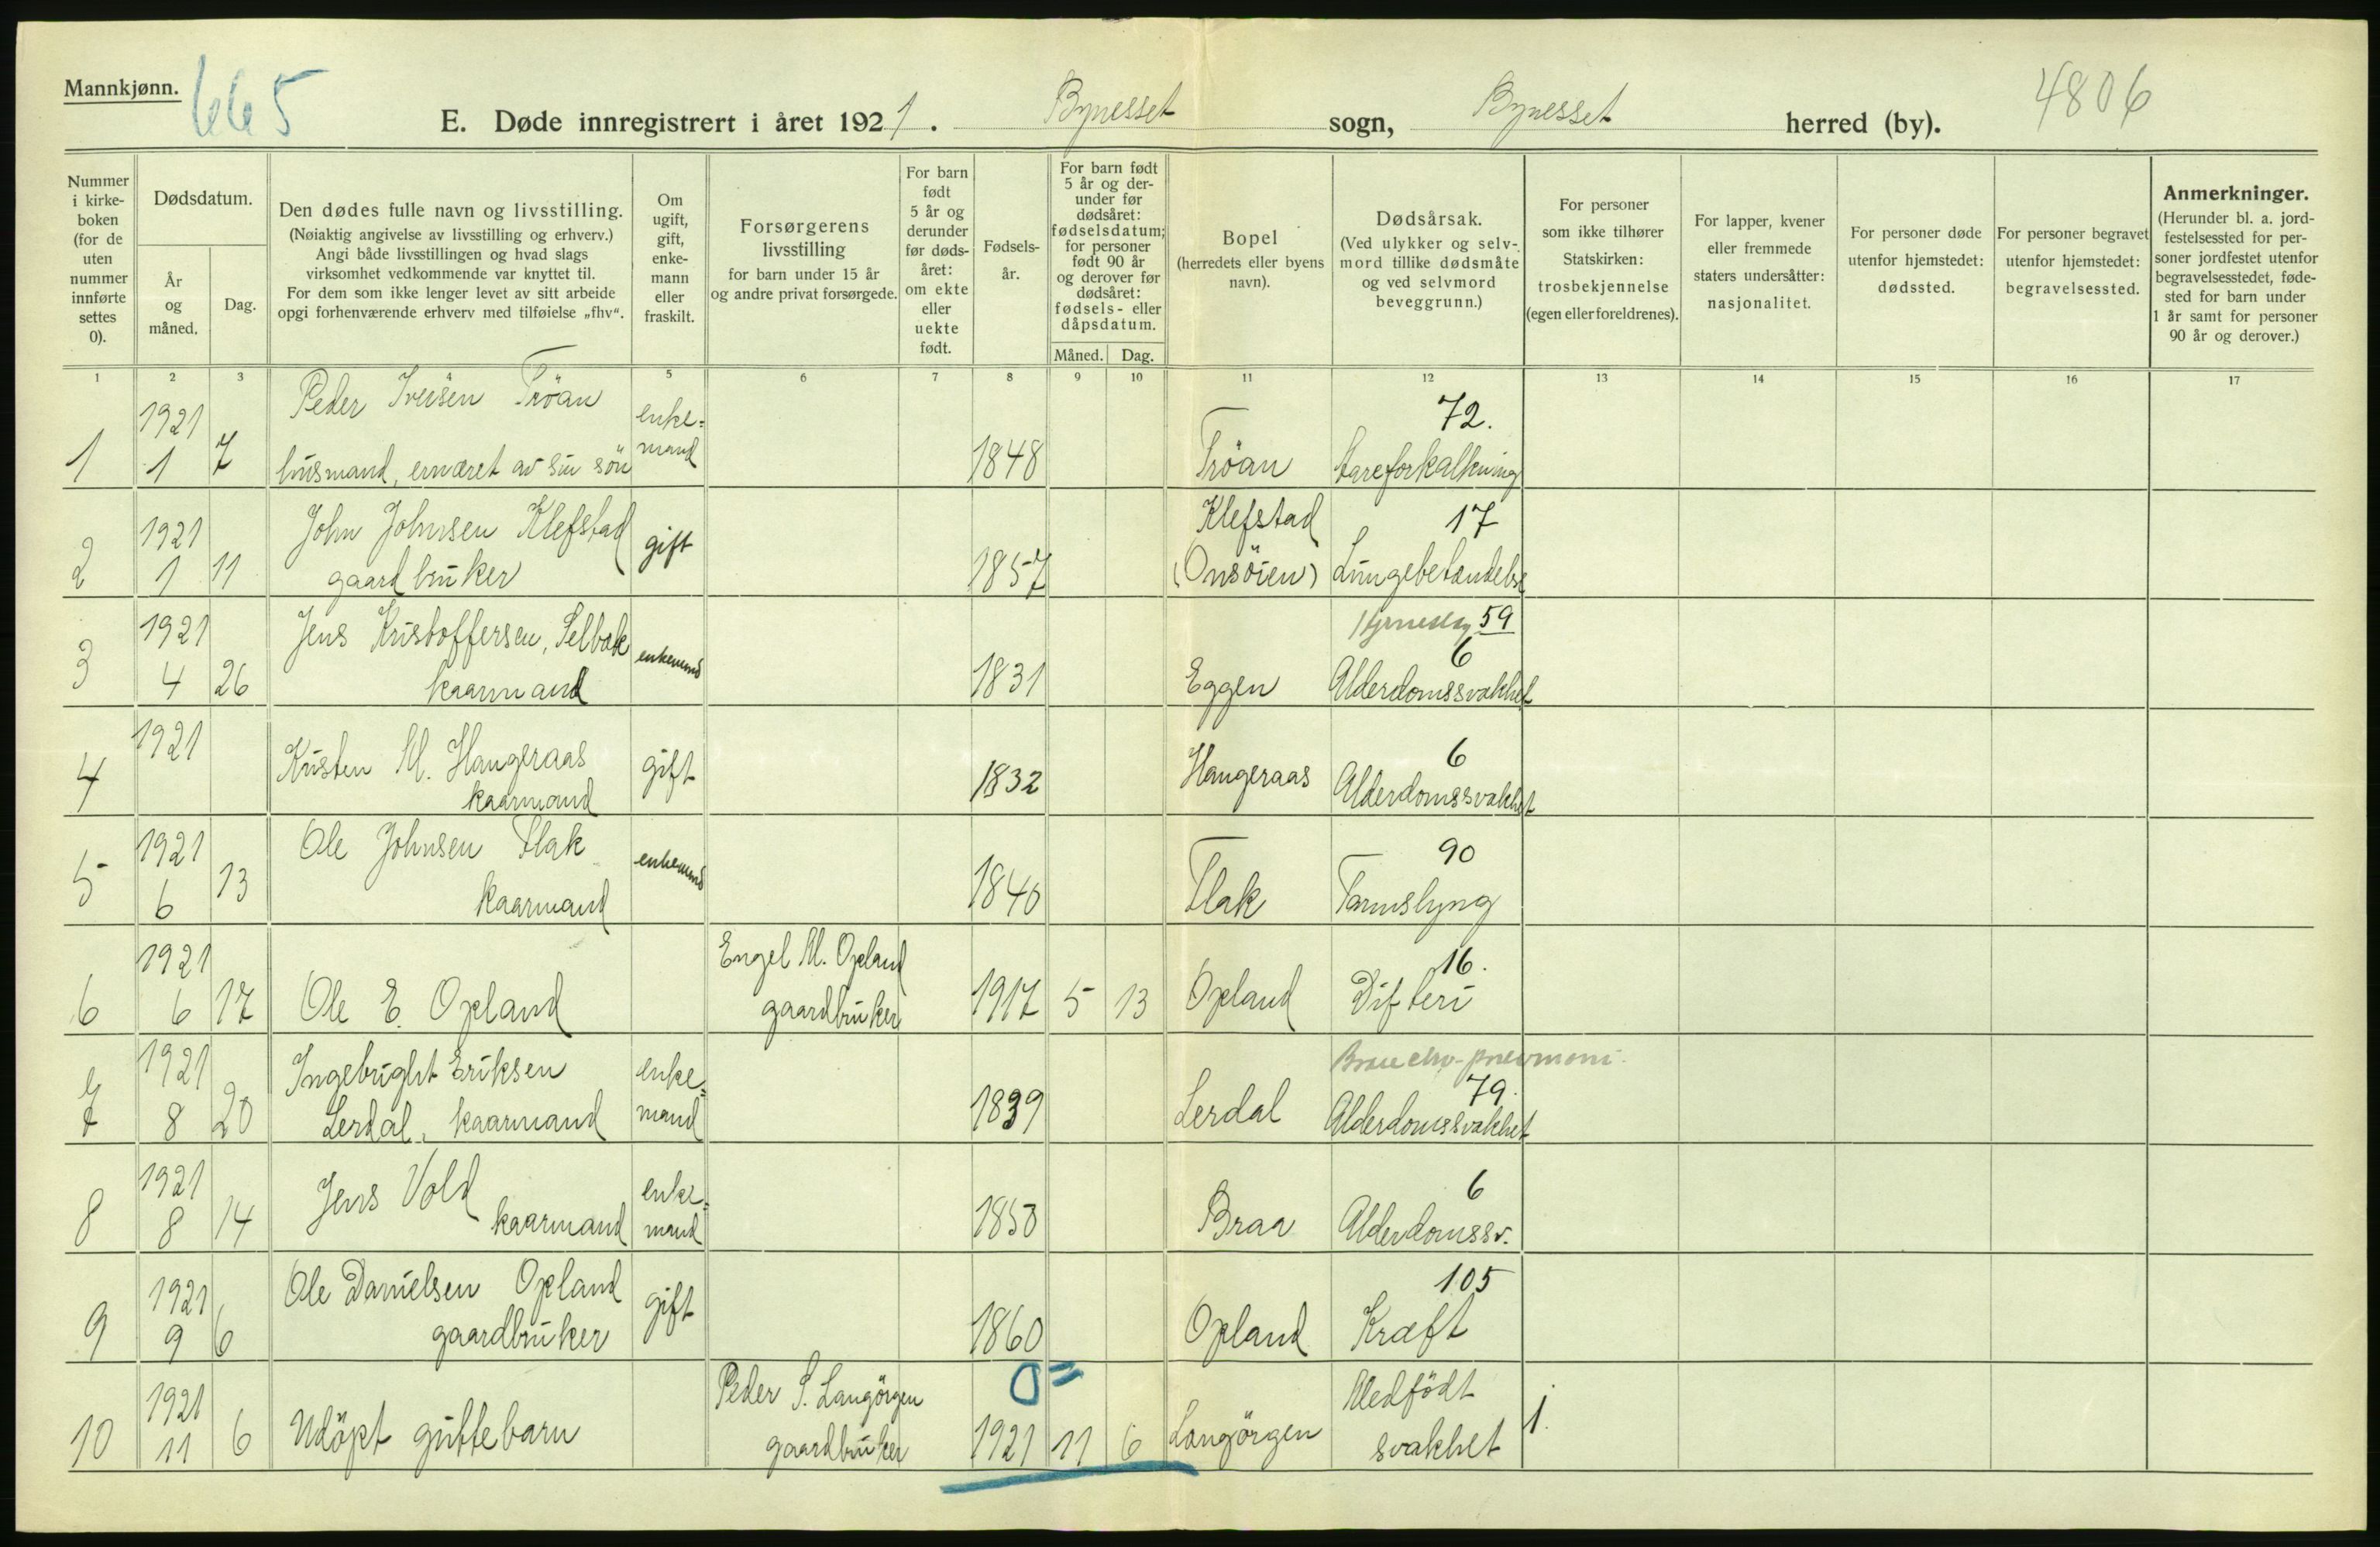 Mannkjønn.
665
E. Døde innregistrert i året 1921. Bynesset sogn, Bynesset herred (by).
4806
Nummer i kirke-boken (for de uten nummer innførte settes 0).
Dødsdatum.
År og måned.
Dag.
Den dødes fulle navn og livsstilling.
(Nøiaktig angivelse av livsstilling og erhverv.)
Angi både livsstillingen og hvad slags
virksomhet vedkommende var knyttet til.
For dem som ikke lenger levet av sitt arbeide
opgi forhenværende erhverv med tilføielse „fhv“.
Om ugift, gift, enke-mann eller fraskilt.
Forsørgerens livsstilling
for barn under 15 år
og andre privat forsørgede.
For barn født 5 år og derunder før døds-året: om ekte eller uekte født.
Fødsels-år.
For barn født 5 år og der-under før dødsåret: fødselsdatum; for personer født 90 år og derover før dødsåret: fødsels- eller dåpsdatum.
Måned. Dag.
Bopel
(herredets eller byens navn).
Dødsårsak.
(Ved ulykker og selv-mord tillike dødsmåte og ved selvmord beveggrunn.)
For personer som ikke tilhører Statskirken: trosbekjennelse (egen eller foreldrenes).
For lapper, kvener eller fremmede staters undersåtter: nasjonalitet.
For personer døde utenfor hjemstedet: dødssted.
For personer begravet utenfor hjemstedet: begravelsessted.
Anmerkninger.
(Herunder bl. a. jord-festelsessted for per-soner jordfestet utenfor begravelsesstedet, føde-sted for barn under 1 år samt for personer 90 år og derover.)
1 2 3 4 5 6 7 8 9 10 11 12 13 14 15 16 17
1 1921 1 7 Peder Iversen Tröan husmand, ernæret av sin sön enke=mand 1848 Tröan 72. Aareforkalkning
2 1921 1 11 John Johnsen Klefstad gaardbruker gift 1857 Klefstad (Onsöien) 17 Lungebetændelse
3 1921 4 26 Jens Kristoffersen, Selbæk kaarmand enkemand 1831 Eggen 59 6 Alderdomssvakhet
4 1921 Kristen M. Haugeraas kaarmand gift 1832 Haugeraas 6 Alderdomssvakhet
5 1921 6 13 Ole Johnsen Flak kaarmand enkemand 1840 Flak 90 Tarmslyng
6 1921 6 17 Ole E. Opland Engel M. Opland gaardbruker 1917 5 13 Opland 16. Difteri
7 1921 8 20 Ingebright Eriksen Lerdal, kaarmand enke=mand 1839 Lerdal Broncho-pnevmoni. 79. Alderdomssvakhet
8 1921 8 14 Jens Vold kaarmand enke=mand 1853 Braa 6 Alderdomssv.
9 1921 9 6 Ole Danielsen Opland gaardbruker gift 1860 Opland 105 Kræft
10 1921 11 6 Udöpt guttebarn Peder S. Langörgen gaardbruker 0 1921 11 6 Langörgen Medfödt svakhet 1.